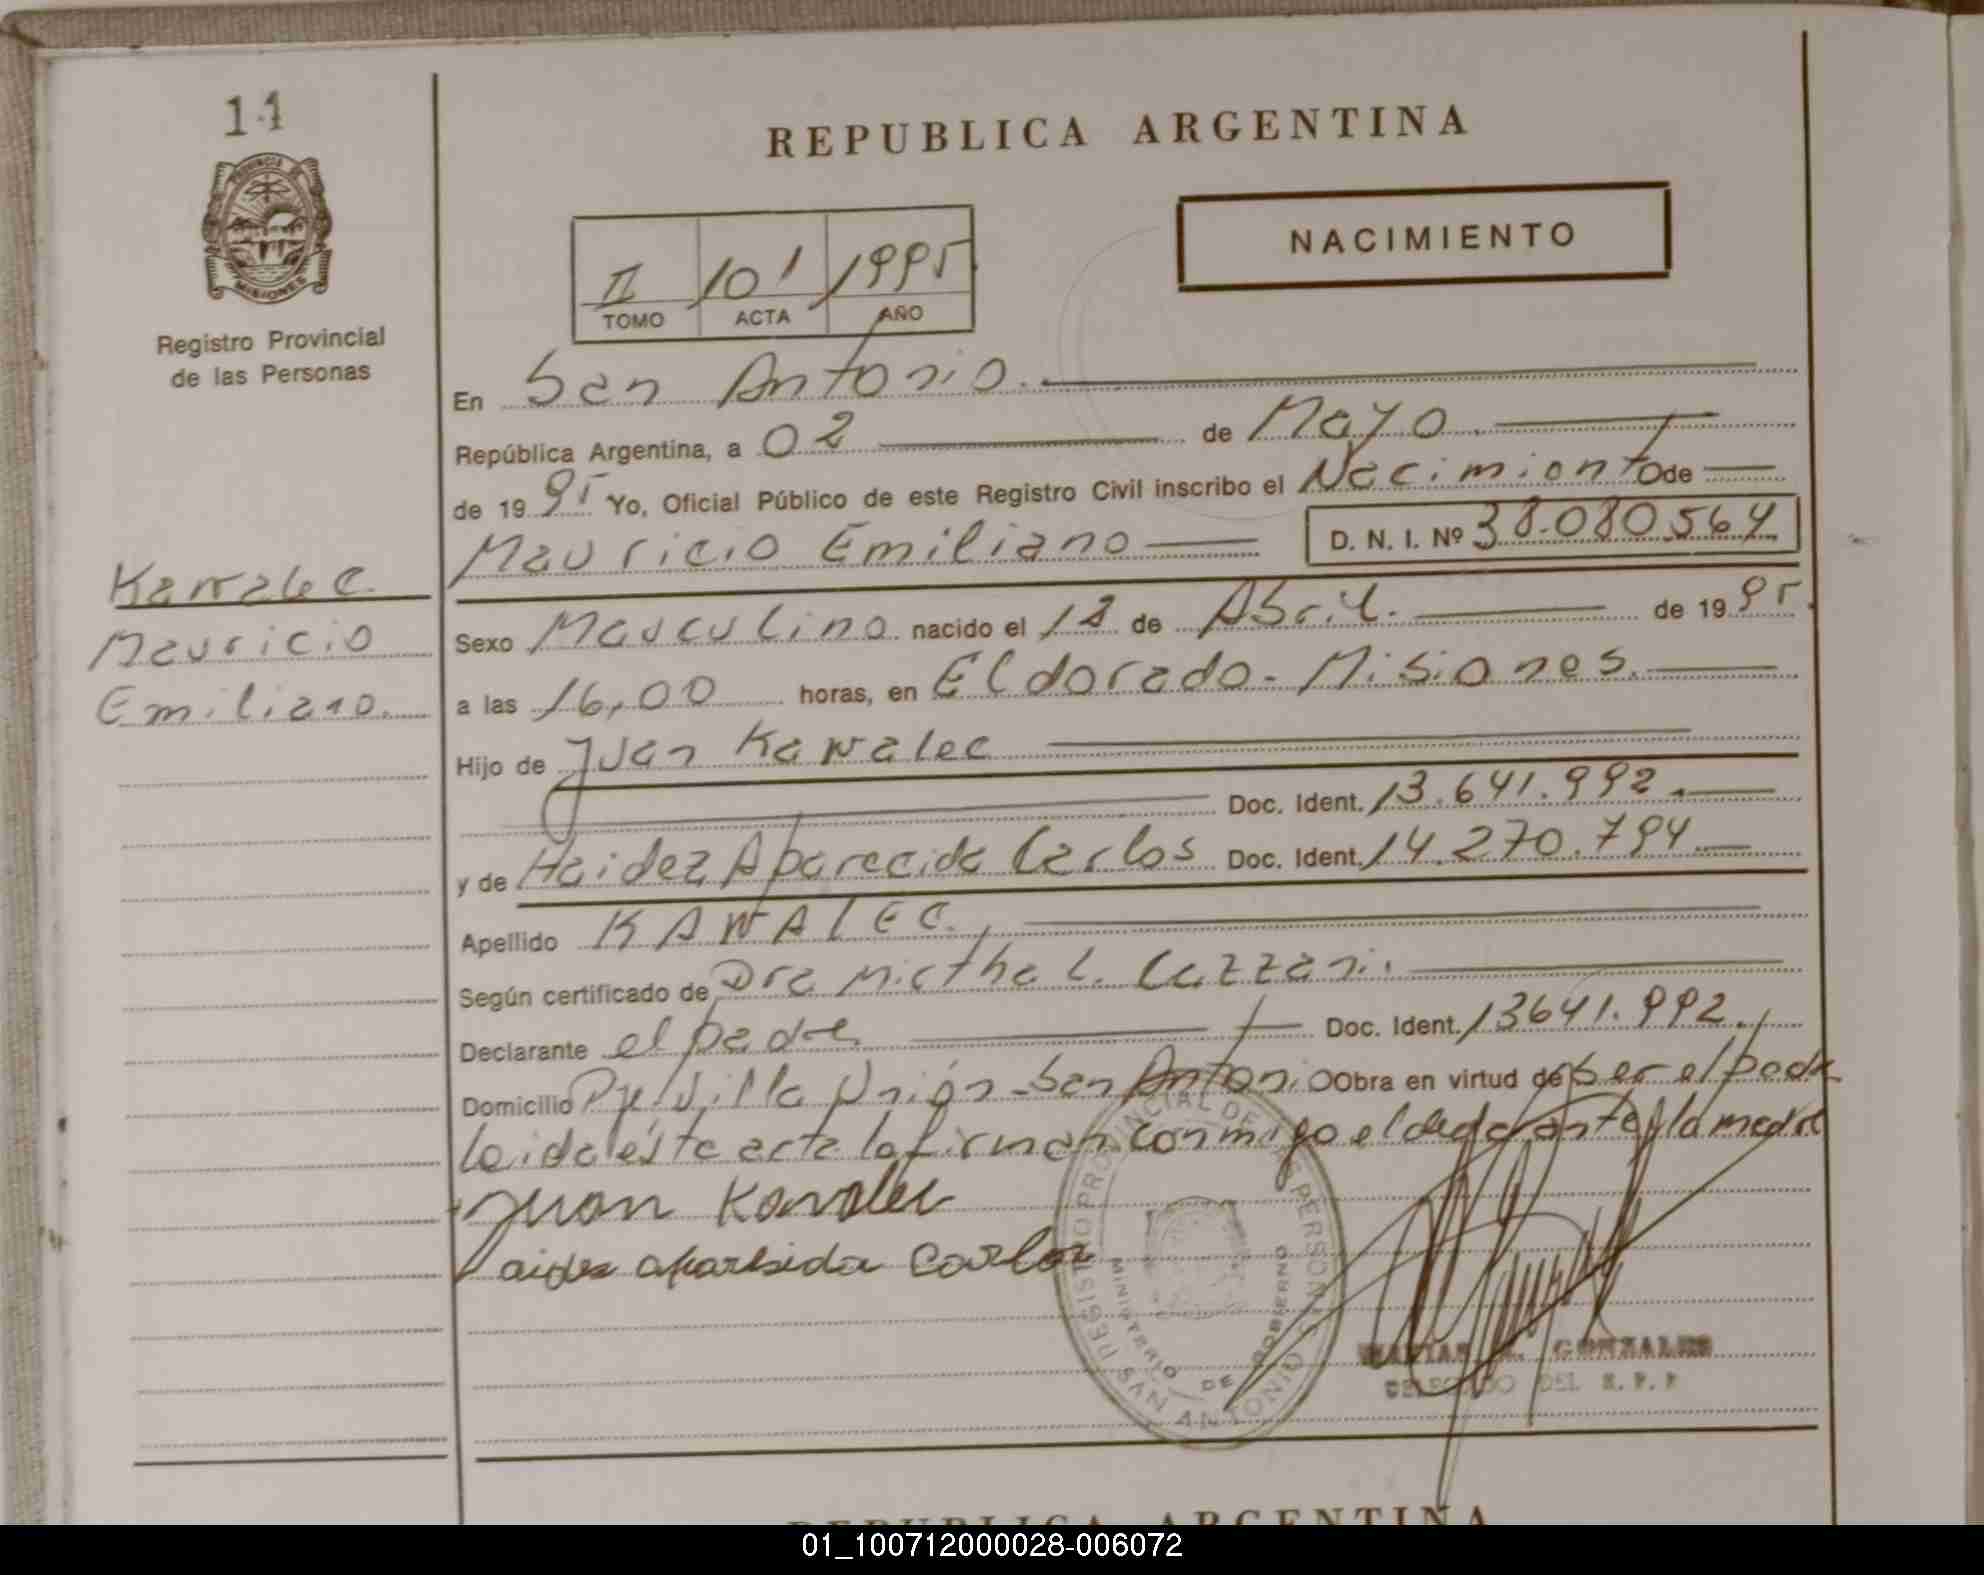 14
REPUBLICA ARGENTINA
PROVINCIA DE
MISIONES
NACIMIENTO
II 101 1995
TOMO ACTA AÑO
Registro Provincial
de las Personas
En San Antonio.
República Argentina, a 02 de Mayo
de 1995 Yo, Oficial Público de este Registro Civil inscribo el Nacimiento de
Mauricio Emiliano D. N. I. Nº 38.080.564
Kawalec
Mauricio
Emiliano.
Sexo Masculino nacido el 18 de Abril. de 1995.
a las 16,00 horas, en Eldorado - Misiones.
Hijo de Juan Kawalec
Doc. Ident. 13.641.992.
y de Haidez Aparecida Carlos Doc. Ident. 14.270.794
Apellido KAWALEC.
Según certificado de Dra Mirtha L. Cazzani.
Declarante el padre Doc. Ident. 13641.992.
Domicilio Pje Villa Unión - San Antonio Obra en virtud de ser el padre
leida ésta acta la firman conmigo el declarante y la madre
Juan Kawalec
aides aparesida Carlos
REGISTRO PROVINCIAL DE LAS PERSONAS
MINISTERIO DE GOBIERNO
SAN ANTONIO
GONZALES
DELEGADO DEL R. P. P
REPUBLICA ARGENTINA
01_100712000028-006072